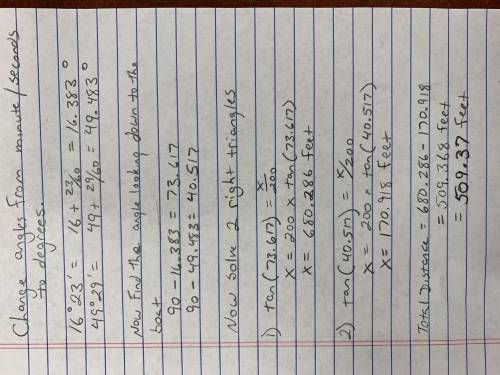 Change angles from minute/seconds
to degrees.
16°23' = 16 + 23/60 = 16.383°
49°29' = 49 + 29/60 = 49.483°
Now Find the angle looking down to the
boat
90 - 16.383 = 73.617
90 - 49.483 = 40.517
Now solve 2 right triangles
1) tan(73.617) = x/200
x = 200 x tan(73.617)
x = 680.286 feet
2) tan(40.517) = x/200
x = 200 x tan(40.517)
x = 170.918 feet
Total Distance = 680.286 - 170.918
= 509.368 feet
= 509.37 feet